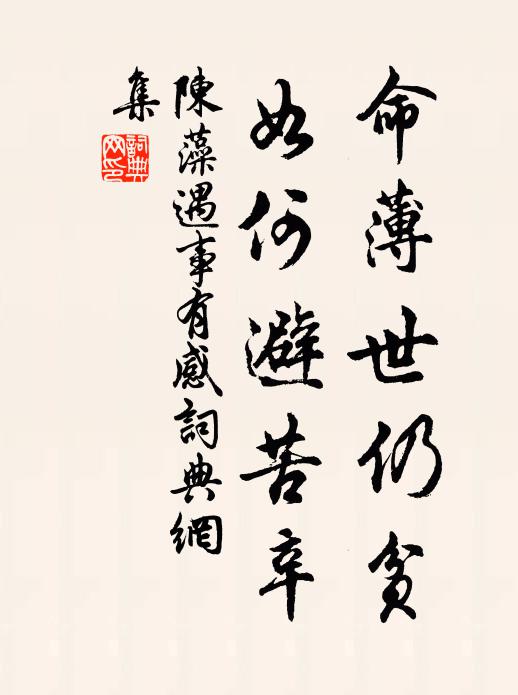 命薄世仍貧
如何避苦辛
陳藻遇事有感詞典網
集
詞典網印